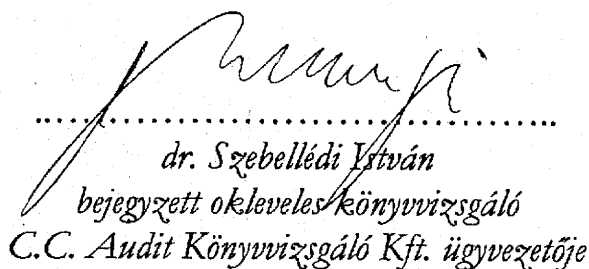 dr. Szebellédi István
bejegyzett okleveles könyvvizsgáló
C.C. Audit Könyvvizsgáló Kft. ügyvezetője